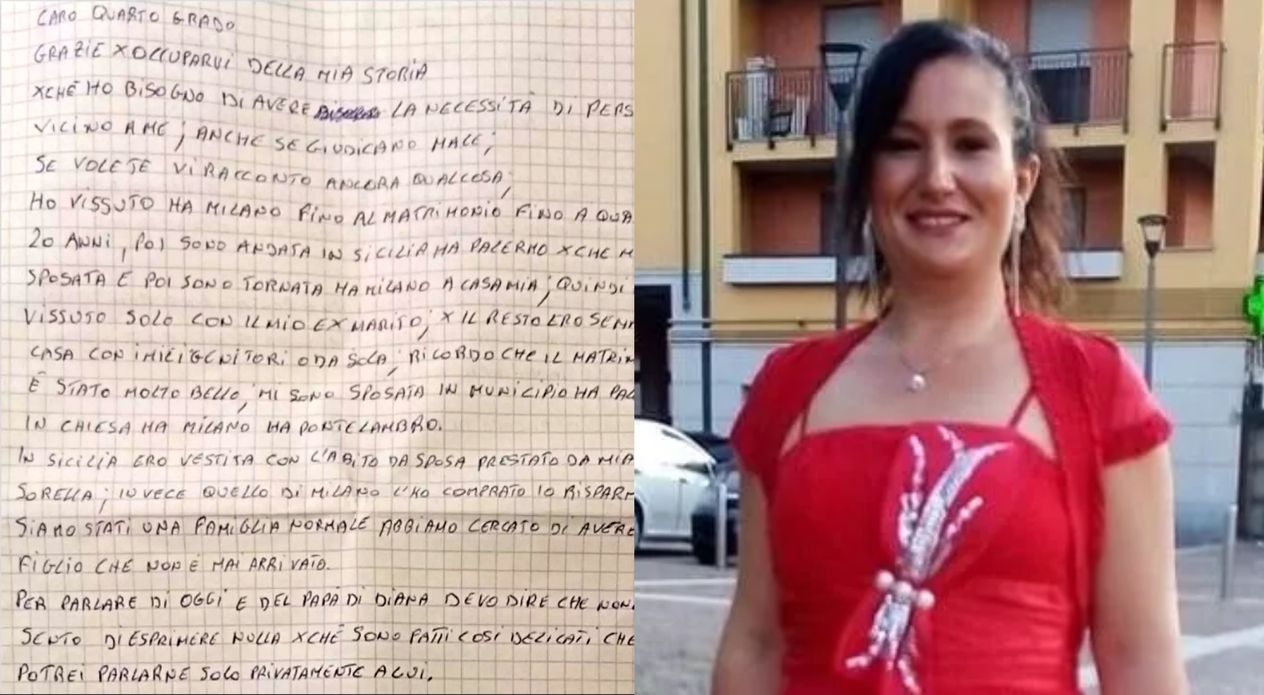 CARO QUARTO GRADO
GRAZIE X OCCUPARVI DELLA MIA STORIA
XCHÉ HO BISOGNO DI AVERE LA NECESSITÀ DI PERS
VICINO A ME; ANCHE SE GIUDICANO MALE;
SE VOLETE VI RACCONTO ANCORA QUALCOSA;
HO VISSUTO HA MILANO FINO AL MATRIMONIO FINO A QUA
20 ANNI, POI SONO ANDATA IN SICILIA HA PALERMO XCHE M
SPOSATA E POI SONO TORNATA HA MILANO A CASA MIA; QUINDI
VISSUTO SOLO CON IL MIO EX MARITO; X IL RESTO ERO SEM
CASA CON I MIEI GENITORI O DA SOLA; RICORDO CHE IL MATRIM
È STATO MOLTO BELLO, MI SONO SPOSATA IN MUNICIPIO HA PAL
IN CHIESA HA MILANO HA PONTELAMBRO.
IN SICILIA ERO VESTITA CON L'ABITO DA SPOSA PRESTATO DA MIA
SORELLA; INVECE QUELLO DI MILANO L'HO COMPRATO IO RISPARM
SIAMO STATI UNA FAMIGLIA NORMALE ABBIAMO CERCATO DI AVERE
FIGLIO CHE NON È MAI ARRIVATO.
PER PARLARE DI OGGI E DEL PAPÀ DI DIANA DEVO DIRE CHE NON
SENTO DI ESPRIMERE NULLA XCHÉ SONO FATTI COSI DELICATI CHE
POTREI PARLARNE SOLO PRIVATAMENTE A LUI.